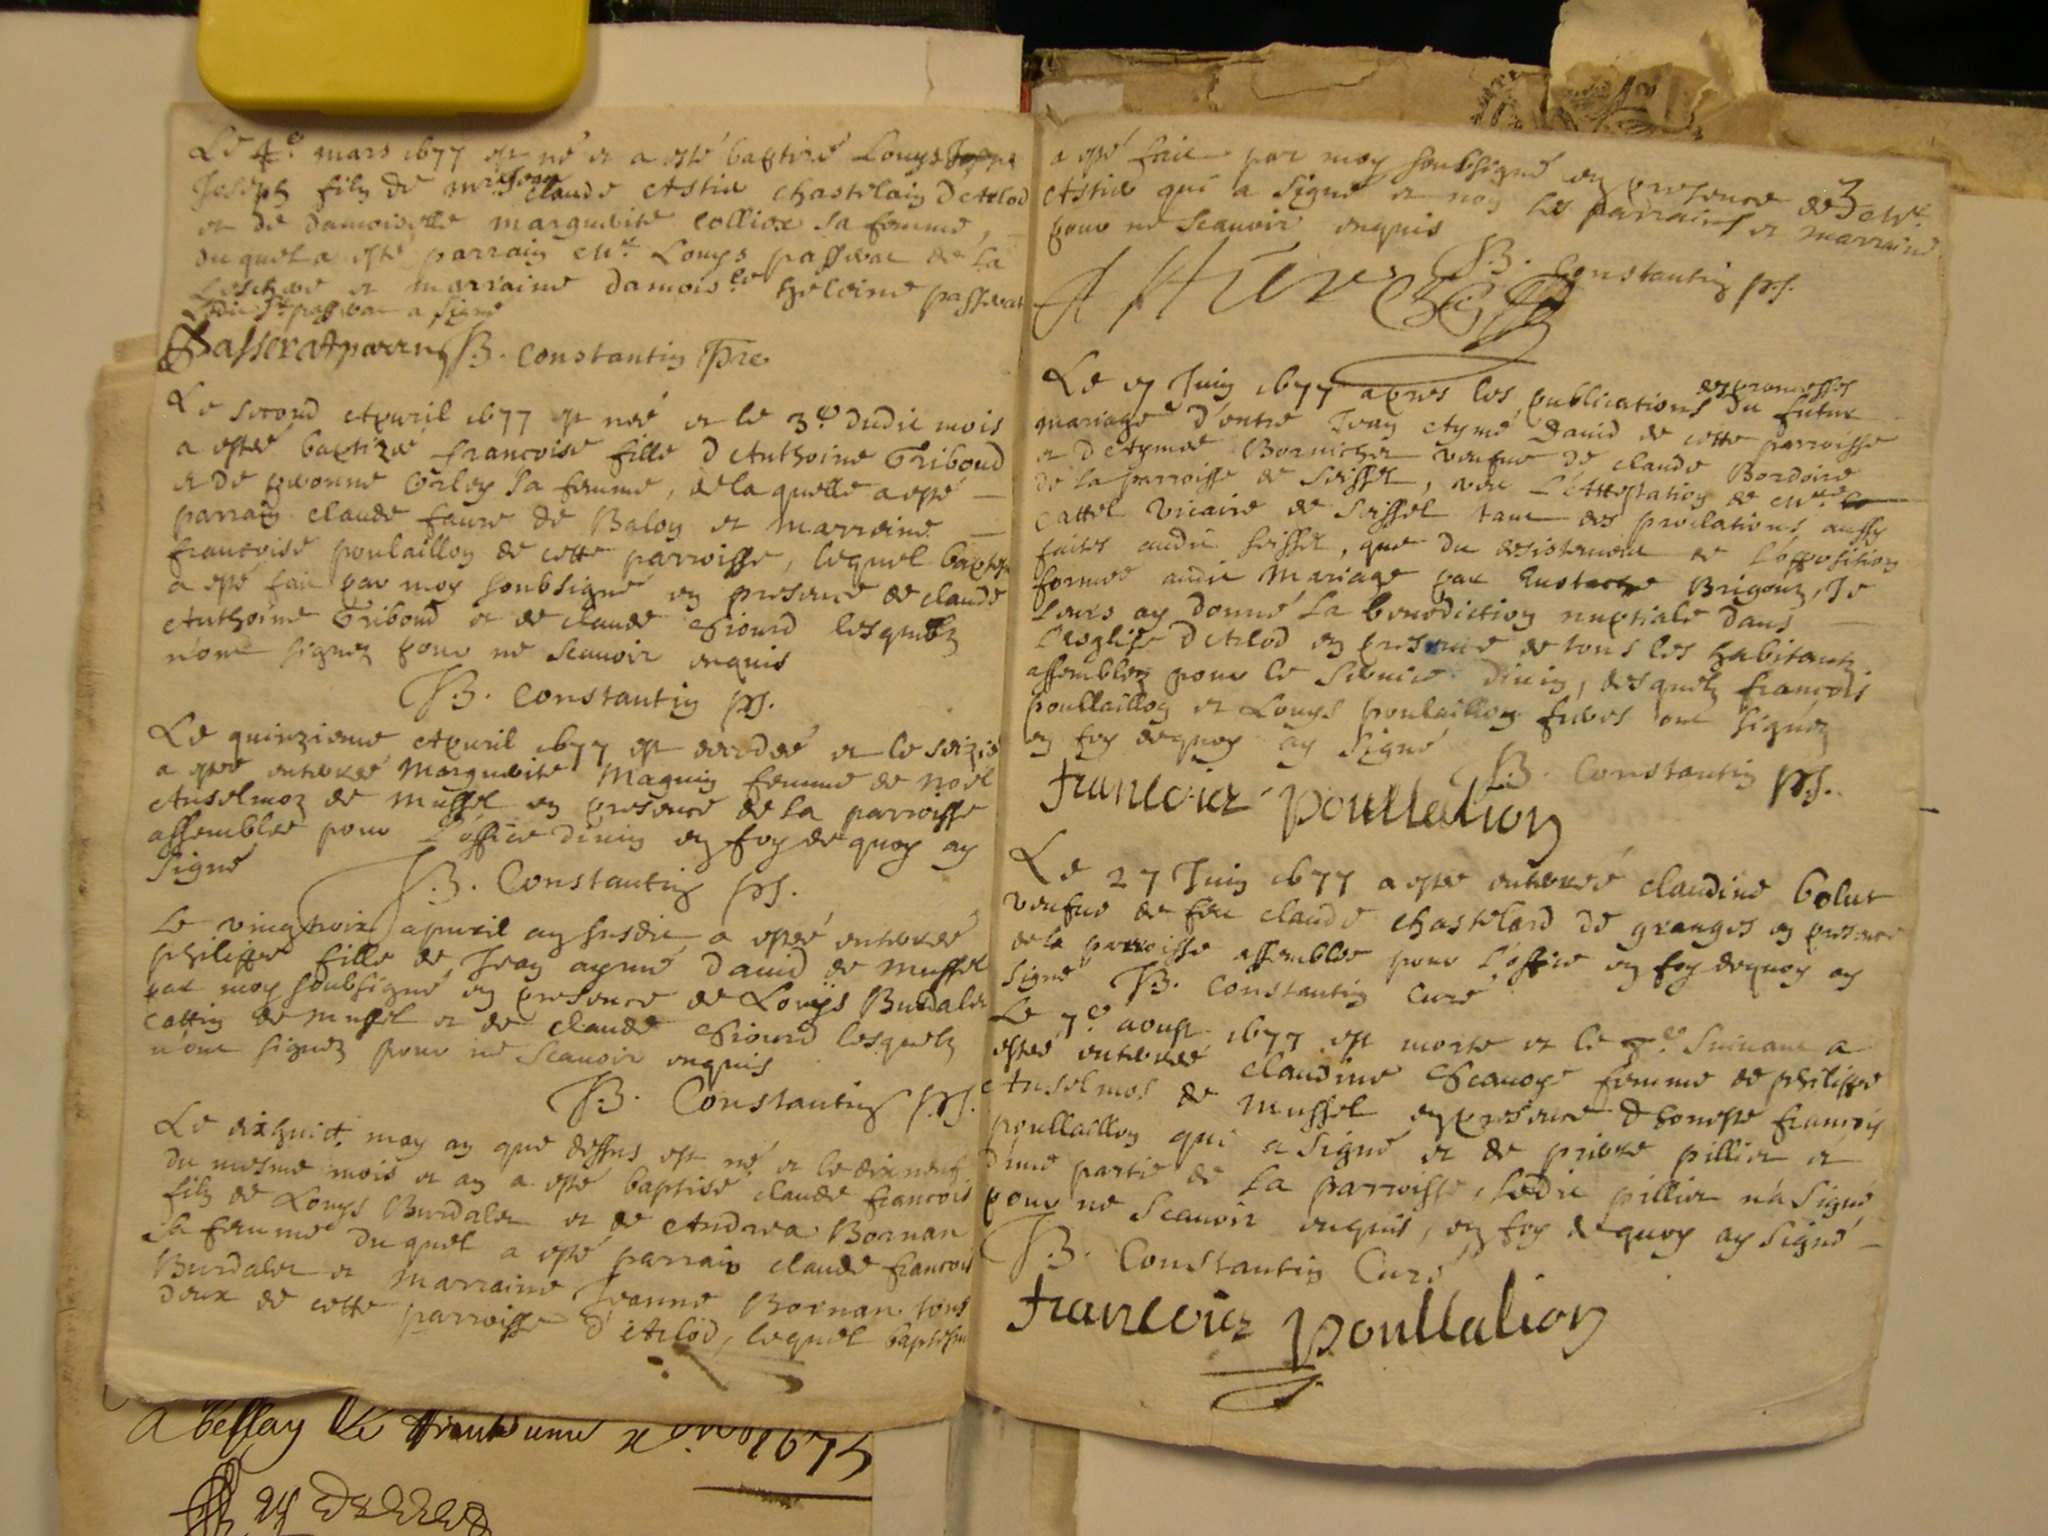 Le 4e mars 1677 est né et a esté baptizé Louys
Joseph filz de mre Jean claude Astier chastelain d Arlod
et de damoiselle margueritte colliex sa femme,
duquel a esté parrain Mre Louys passerat de la
et marraine damoislle heleine passerat
ledit Sr passerat a signé
Passerat parrin B. Constantin Pre
Le second Apuril 1677 est née et le 3e dudit mois
a estée baptizée francoise fille d Anthoine Triboud
et de yvonne Grley sa femme, de laquelle a esté
parrain claude faure de Balon et marreine
francoise poulaillon de cette parroisse, lequel baptesme
a esté fait par moy soubsigné en presence de claude
Anthoine Triboud et de claude Sriourd lesquelz
n'ont signez pour ne scauoir enquis
B. Constantin ps.
Le quinzieme Apuril 1677 est decedée et le seizie
a estée enterrée Margueritte Magnin femme de noel
Anselmoz de mussel en presence de la parroisse
assemblée pour l'office diuin en foy de quoy ay
signé
B. Constantin ps.
Le vingtroix apuril an susdit a estée enterrée
philippe fille de Jean aymé Dauid de mussel
par moy soubsigné en presence de Louys Burdalet
cattin de mussel et de claude Sriourd lesquelz
n'ont signez pour ne scauoir enquis
B. Constantin ps.
Le dixhuict may an que dessus est né et le dix neuf
du mesme mois et an a esté baptisé claude francois
filz de Louys Burdalet et de Andrea Bornan
sa femme duquel a esté parrain claude francois
Burdalet et marraine Jeanne Bornan tous
deux de cette parroisse d'Arlod, lequel baptesme
A bessay le trente une 1675
3
a esté fait par moy soubsigné en presence de Mre
Astier qui a signé et non les parrains et marraine
pour ne scauoir enquis
B. Constantin ps.
Astier
Le 7 Juin 1677 apres les publications des promesses du futur
mariage d'entre Jean Aymé Dauid de cette parroisse
et d Aymée Bornicher veufue de claude Bordoire
de la parroisse de seissel, veu l'Attestation de Mre
cattel vicaire de seissel tant des proclations aussy
faites audit seissel, que du desistement de l'opposition
formée audit mariage par Eustache Brigouz, Je
leurs ay donné la benediction nuptiale dans
l'esglise d'Arlod en presence de tous les habitantz
assemblez pour le seruice diuin, desquelz francois
poullaillon et Louys poulaillon freres ont signéz
en foy dequoy ay signé
B. Constantin ps.
francoiz poullalion
Le 27 Juin 1677 a estée enterrée claudine bolut
veufue de feu claude chastelard de granges en presence
de la parroisse assemblée pour l'office en foy dequoy ay
signé B. Constantin Curé
Le 7e aoust 1677 est morte et le 8e suiuant a
estée enterrée claudine Scauoye femme de philippe
Anselmos de mussel en presence d'honeste francois
poullaillon qui a signé et de prierre pillier et
d'une partie de la parroisse, ledit pillier n'a signé
pour ne scauoir enquis, en foy dequoy ay signé
B. Constantin Curé
francoiz poullalion